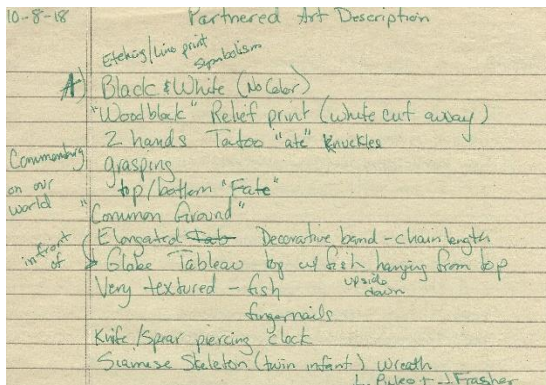 10-8-18 Partnered Art Description
Etching/Lino print
Symbolism
A) Black & White (No Color)
"Woodblock" Relief print (white cut away)
2 hands Tatoo "ate" Knuckles
Commentary grasping
on our top/bottom "Fate"
world "Common Ground"
Elongated Decorative band - chain length
in front of Globe Tableau w/ fish hanging from top
upside down
Very textured - fish
fingernails
Knife/Spear piercing clock
Siamese Skeleton (twin infant) Wreath
J. Frasher